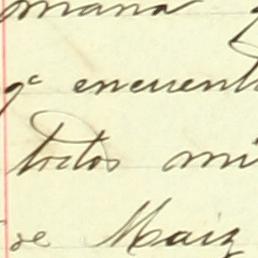 mana
qe encuent
tritos mi
de Maiz